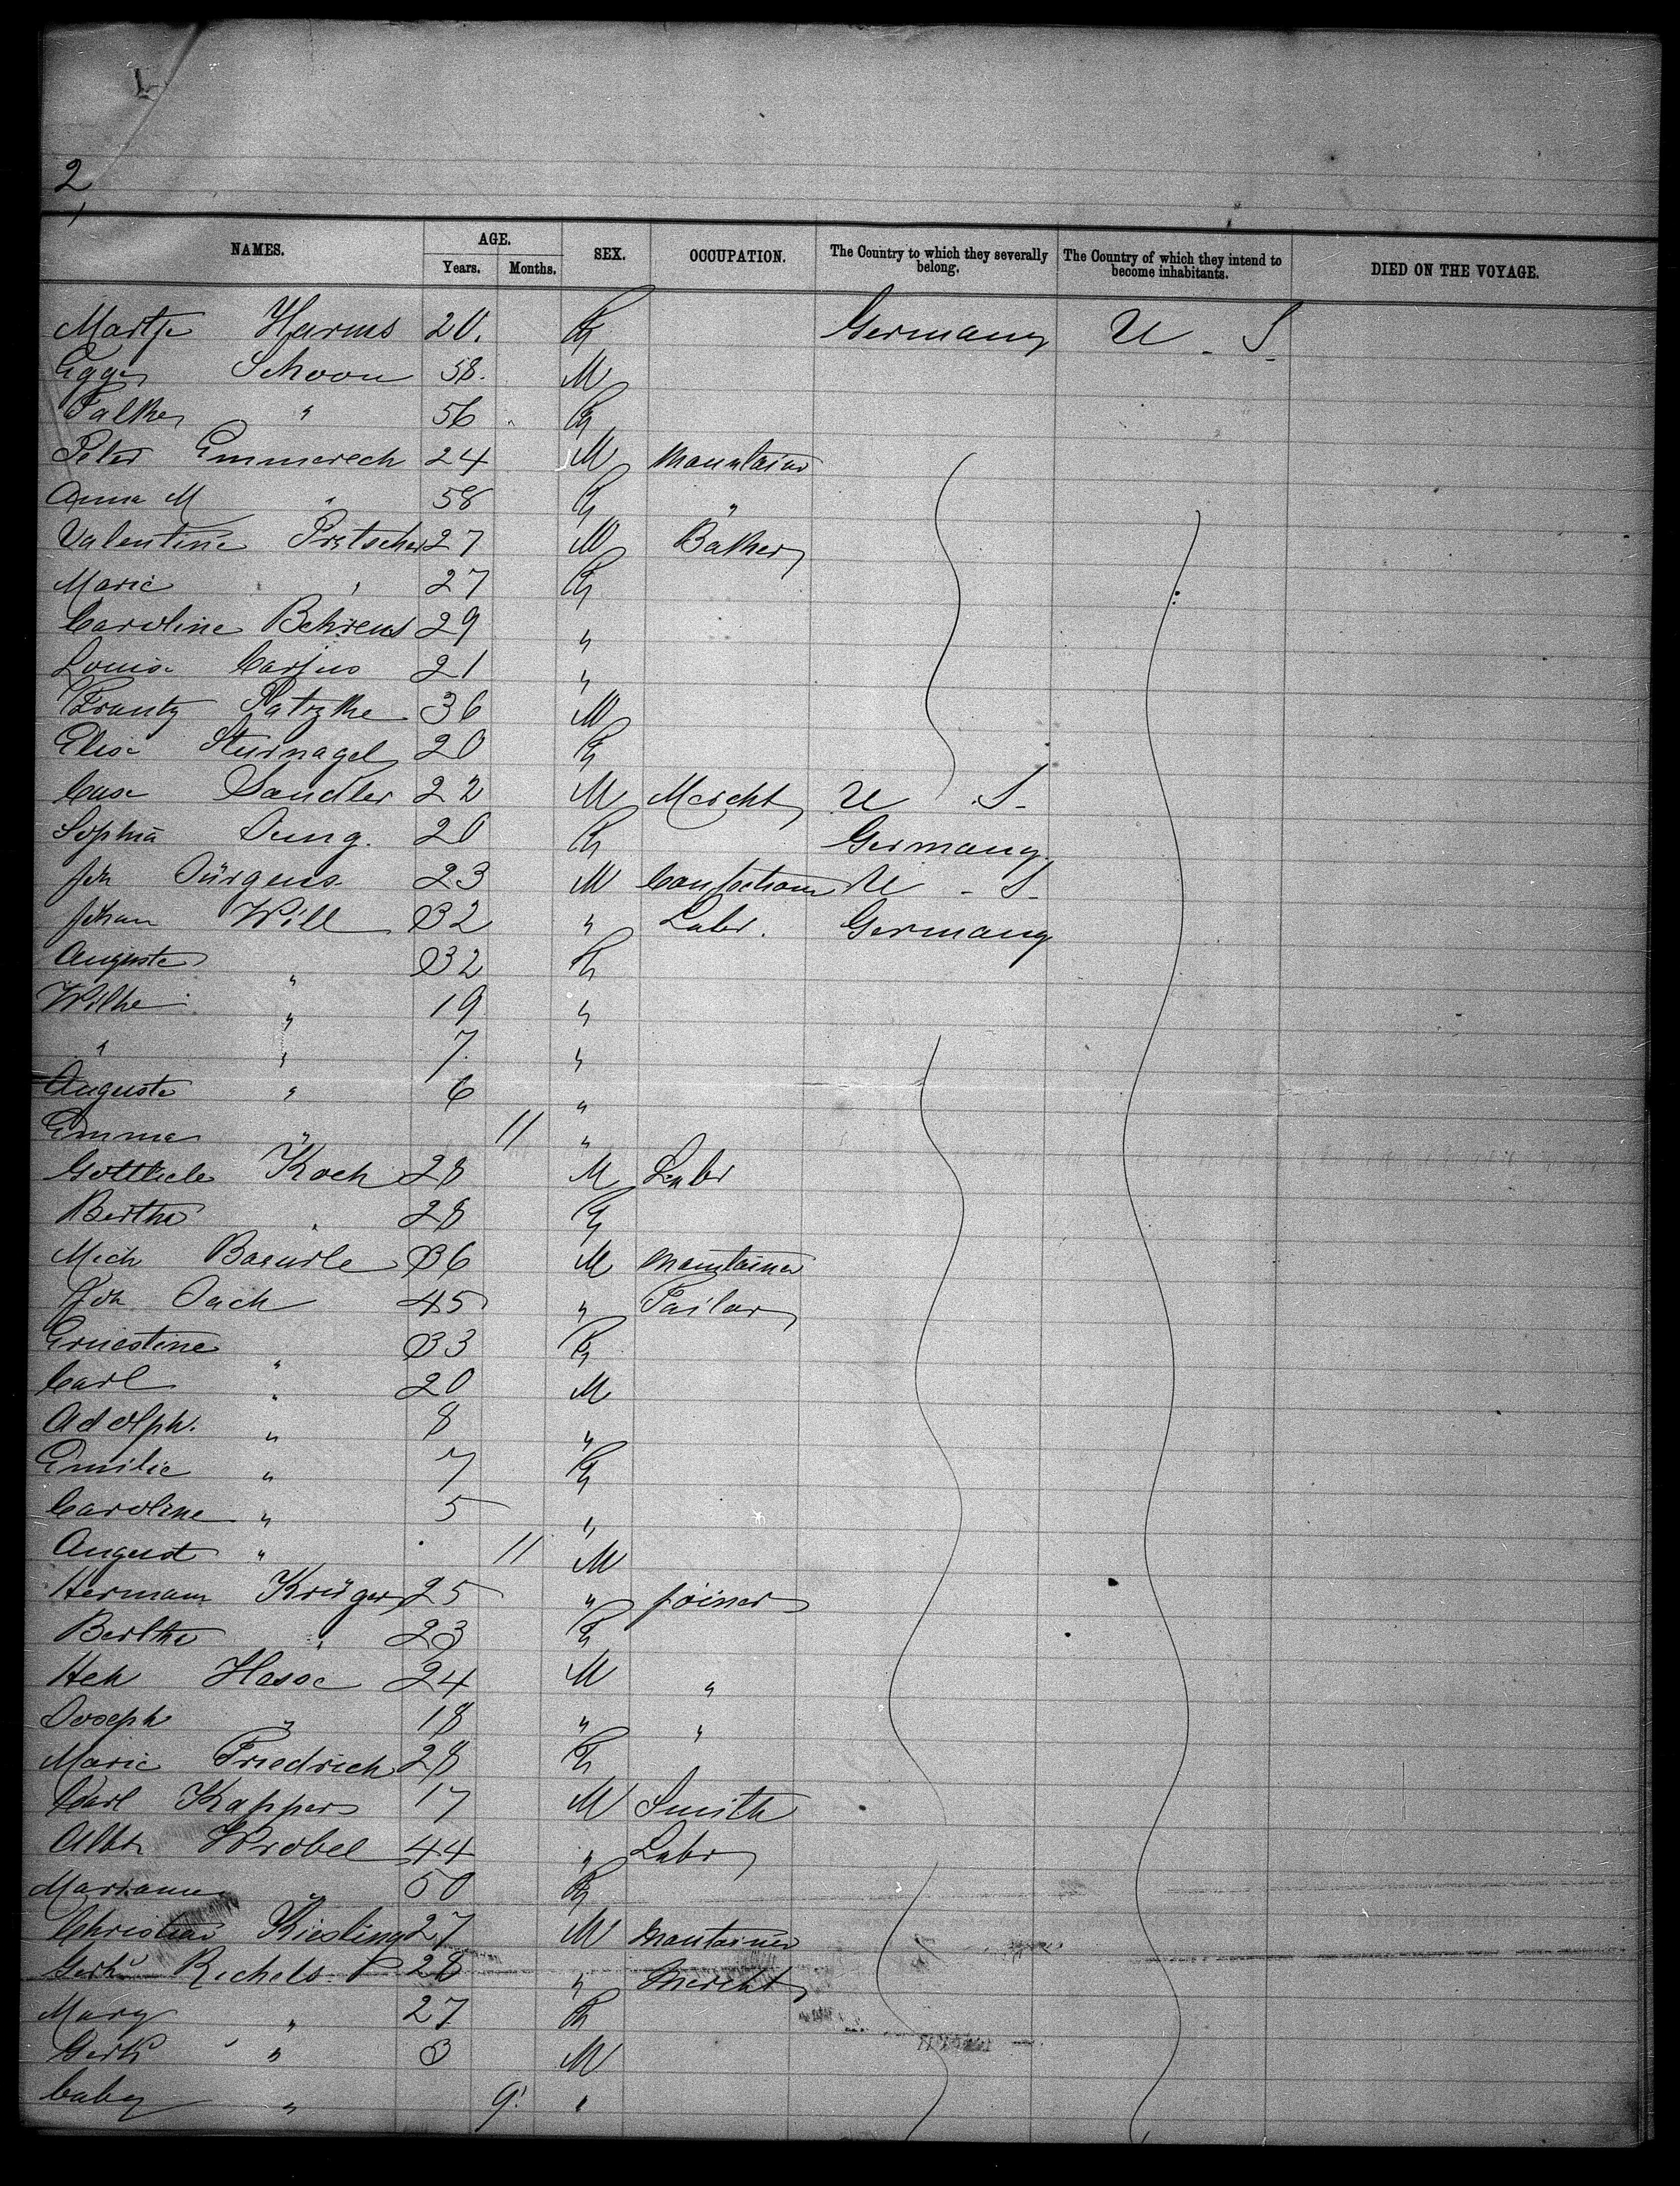 2
NAMES. AGE. Years. Months. SEX. OCCUPATION. The Country to which they severally belong. The Country of which they intend to become inhabitants. DIED ON THE VOYAGE.
Martje Harms 20. Germany U. S.
Schoon 58. M
" 56
Peter Emmerech 24 M
Anna M " 58 "
Valentine 27 M Baker
Marie " 27
Caroline Behrens 29 "
Louise 21 "
Frantz Patzke 36 M
Elise Sturnagel 20
Sandler 22 M Mercht U S.
Sophia Jung. 20 Germany
Joh Jürgens 23 M U - S
Johan Will 32 " Labr. Germany
Auguste " 32
Wilhe " 19 "
" " 7 "
Auguste " 6 "
Emma " 11 "
Gottlieb Koch 28 M Labr
Bertha " 28
Mich 36 M
Joh Jach 45 " Tailor
Ernestine " 33
Carl " 20 M
Adolph. " 8 "
Emilie " 7
Caroline " 5 "
August " 11 M
Hermann Krüger 25 " joiner
Bertha " 23
Heh Hasse 24 M "
Joseph " 18 " "
Marie Friedrich 28
Carl Kappers 17 M Smith
Albt Wrobel 44 " Labr
Marianne " 50
Christian Kiesling 27 M
Richels 28 " Mercht
Mary " 27
" 3 M
baby " 9 "